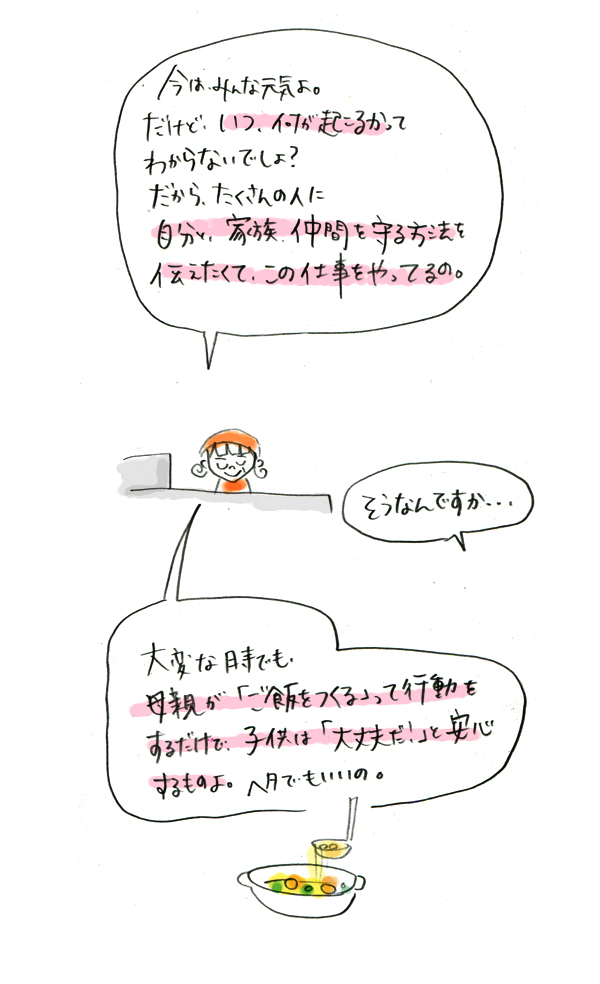 今は、みんな元気よ。
だけど、いつ、何が起こるかって
わからないでしょ?
だから、たくさんの人に
自分と、家族、仲間を守る方法を
伝えたくて、この仕事をやってるの。
そうなんですか...
大変な時でも、
母親が「ご飯をつくる」って行動を
するだけで、子供は「大丈夫だ!」と安心
するものよ。鍋でもいいの。